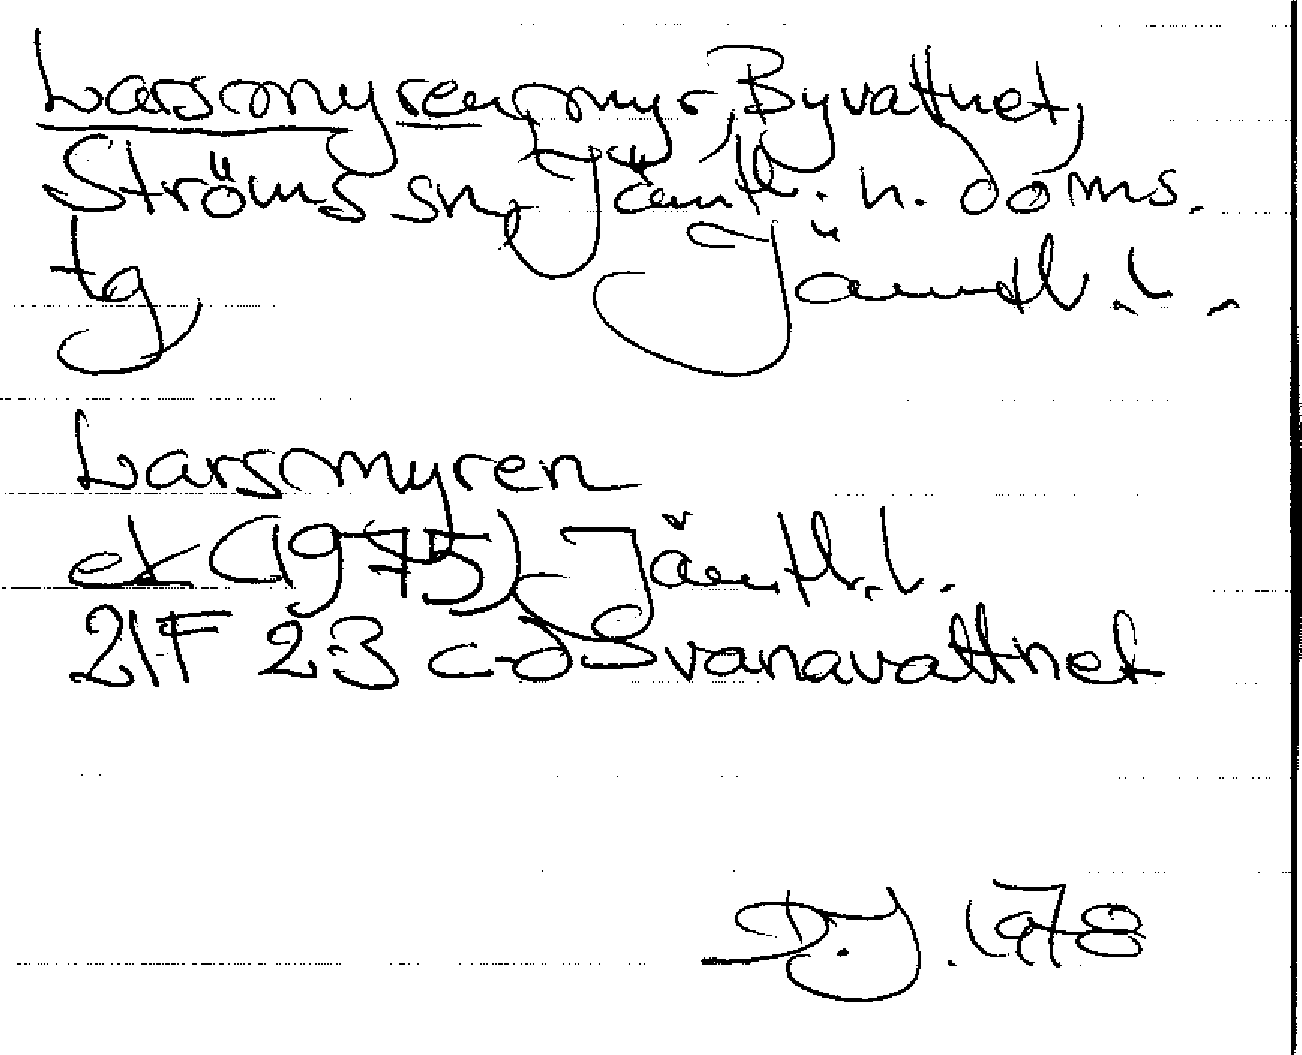 Larsmyren, myr, Byvattnet,
Ströms sn, Jämtl. n. doms.
tg Jämtl. l.
Larsmyren
ek (1975) Jämtl. l.
21F 2-3 c-d Svanavattnet
D.J. 1978